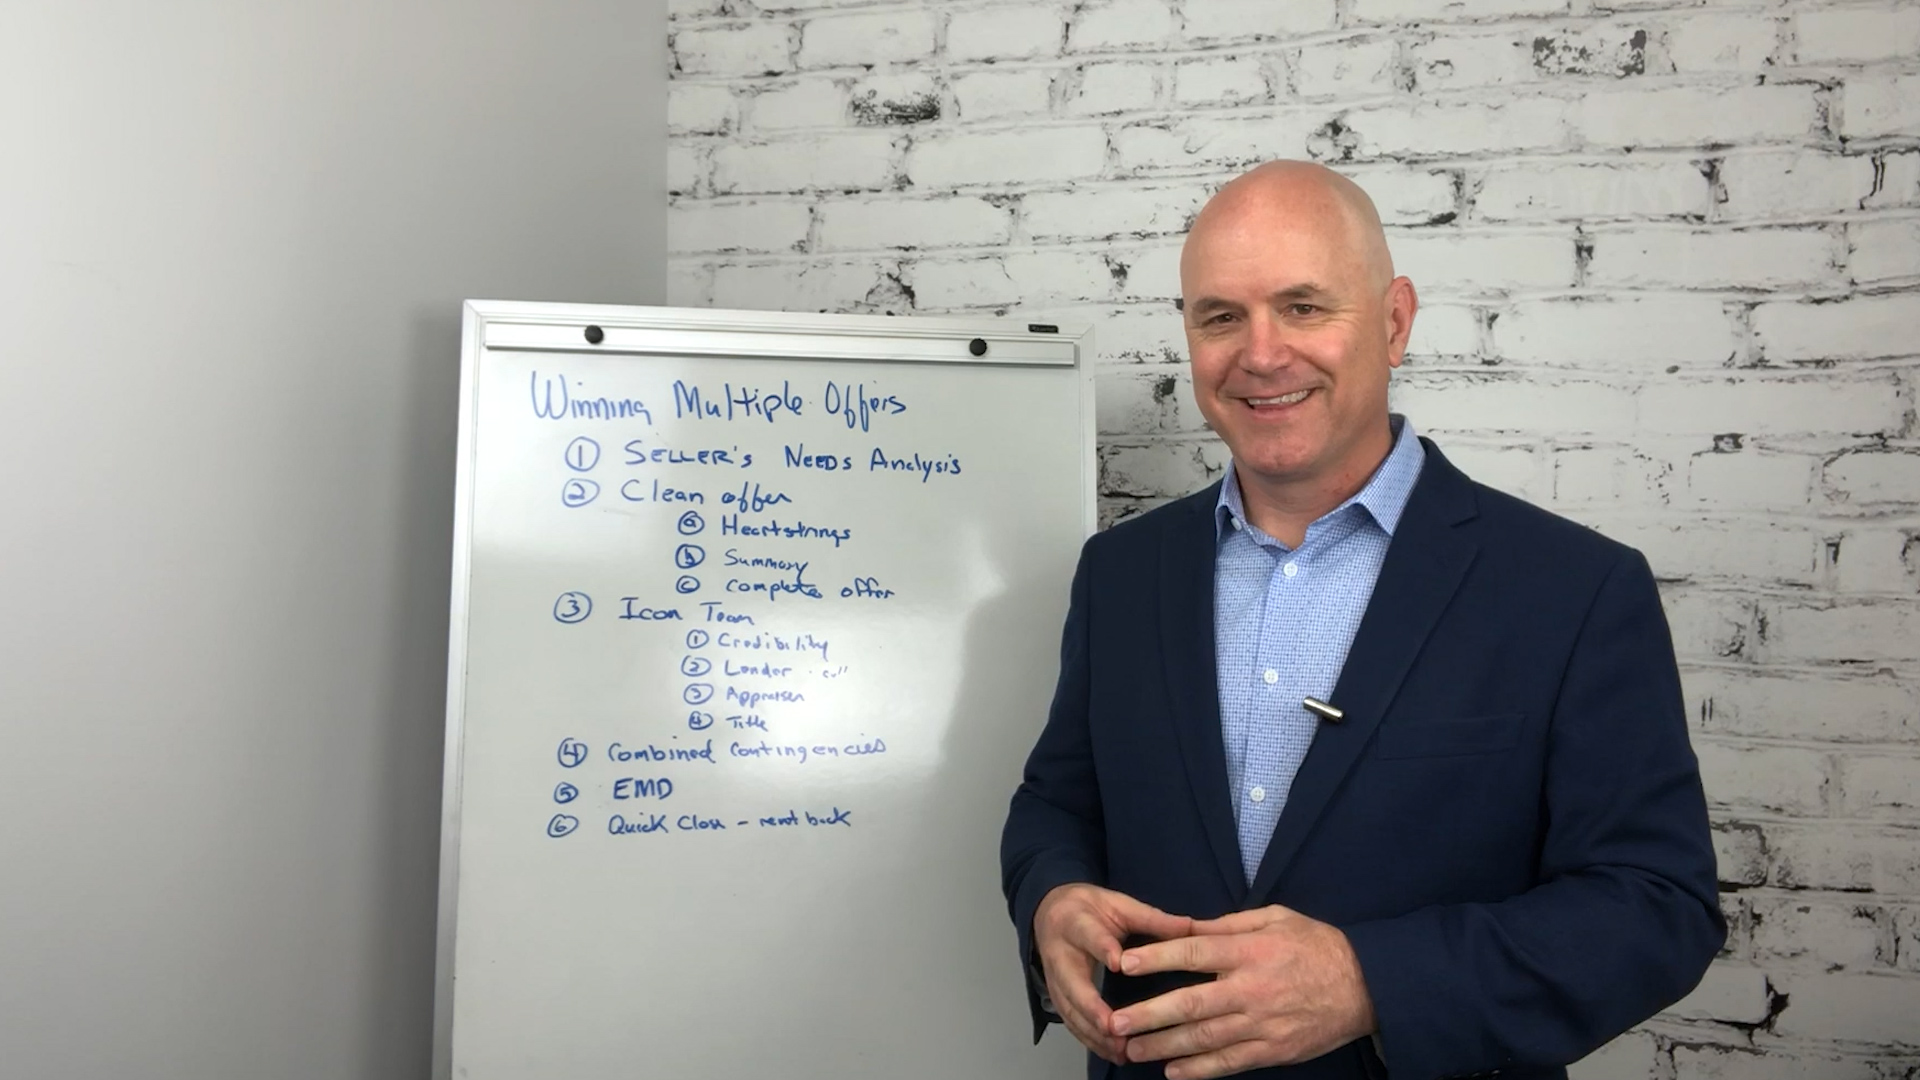 Winning Multiple Offers
① SELLER's NEEDS Analysis
② Clean offer
ⓐ Heartstrings
ⓑ Summary
ⓒ Complete offer
③ Icon Team
① Credibility
② Lender · call
③ Appraiser
④ Title
④ Combined Contingencies
⑤ EMD
⑥ Quick Close - rent back